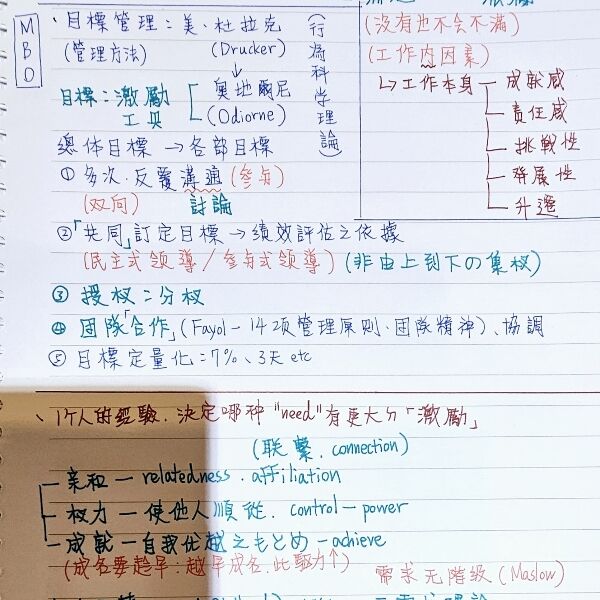 MBO
目標管理：美．杜拉克
(管理方法) (Drucker)
(行為科學理論)
目標：激勵 奧地爾尼
工具 (Odiorne)
總体目標 → 各部目標
① 多次．反覆溝通 (參与)
(双向) 討論
(沒有也不会不滿)
(工作内因素)
↳工作本身 — 成就感
責任感
挑戰性
發展性
升遷
②「共同」訂定目標 → 績效評估之依據
(民主式領導／參与式領導) (非由上到下の集权)
③ 授权：分权
④ 團隊「合作」(Fayol－14項管理原則．团隊精神)、協調
⑤ 目標定量化：7%、3天 etc
、1个人的經驗．決定哪种 "need" 有更大分「激勵」
(联繫．connection)
亲和 — relatedness．affiliation
权力 — 使他人順從．control — power
成就 — 自我优越之もとめ — achieve
(成名要趁早：越早成名．此驅力↑)
需求无階級 (Maslow)